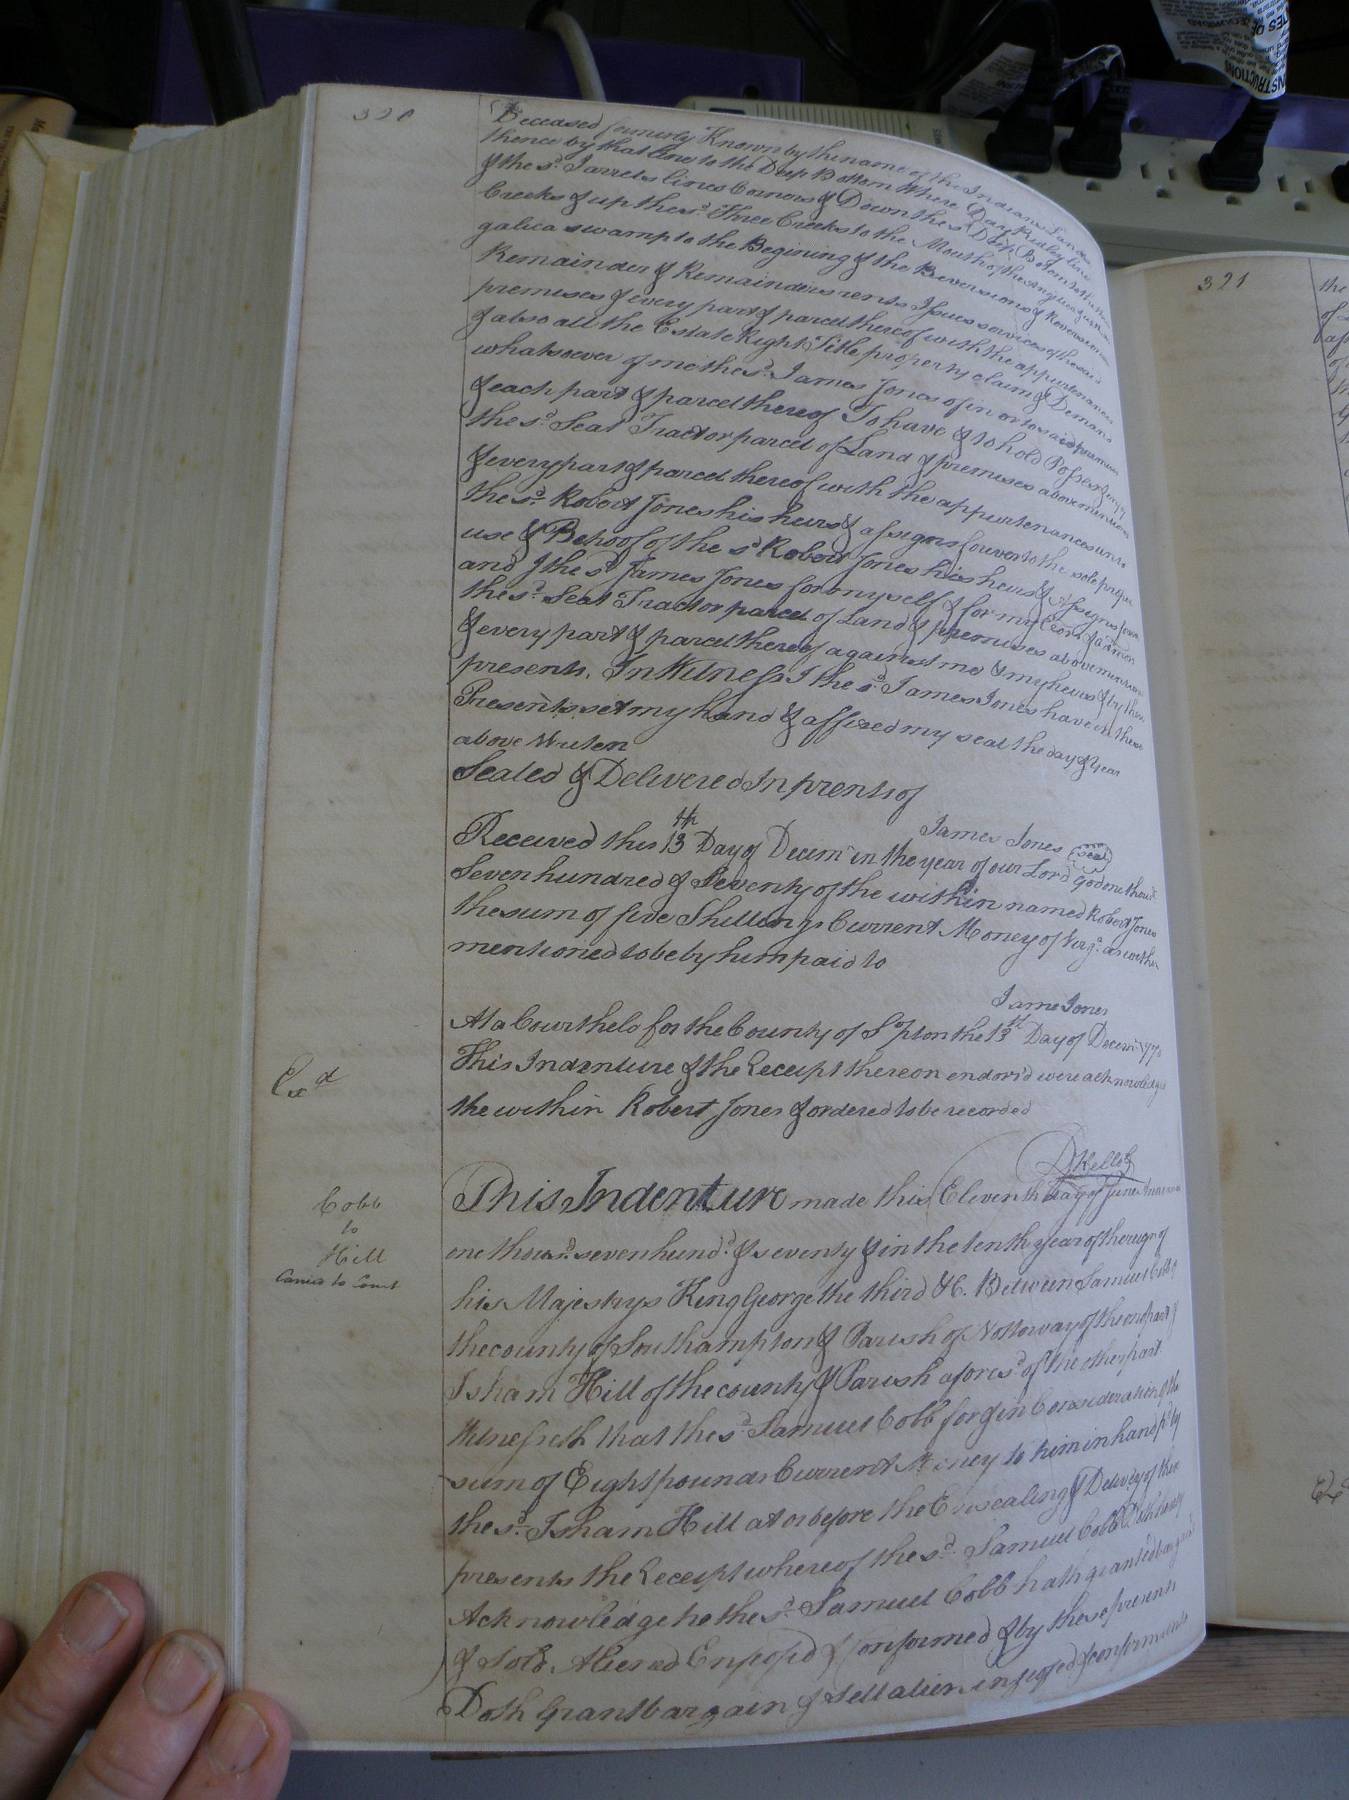 320
Deceased formerly Known by the name of the Indians Lands
thence by that line to the Deep Bottom Where
of the sd. Jarrels lines Corners & Down the sd. Deep Bottom to the three
Creeks & up the sd. Three Creeks to the Mouth of the
galica swamp to the Begining & the Reversion & Reversions
Remainder & Remainders rents Issues services of the said
premeses & every part & parcel thereof with the appurtenances
& also all the Estate Right Title property claim & Demand
whatsoever of me the sd. James Jones of in or to said premeses
& each part & parcel thereof To have & to hold Possess & enjoy
the sd. Seat Tract or parcel of Land & premeses abovementioned
& every part & parcel thereof with the appurtenances unto
the sd. Robert Jones his heirs & assigns forever to the sole proper
use & Behoof of the sd Robert Jones his heirs & Assigns forever
and I the sd James Jones for myself & for my
the sd. Seat Tract or parcel of Land & premeses abovementioned
& every part & parcel thereof against me & my heirs & by these
presents. In Witness I the sd. James Jones have in these
Presents set my hand & affixed my seal the day & year
above Writen
Sealed & Delivered In prents of
James Jones seal
Received this 13th Day of Decemr in the year of our Lord god one thousd.
Seven hundred & Seventy of the within named Robert Jones
the sum of five Shillings Current Money of Virga. as within
mentioned to be by him paid to
Jame Jones
At a Court held for the County of S'pton the 13th Day of Decemr 1770
This Indenture & the Receipt thereon endors'd were acknowledged
the within Robert Jones & ordered to be recorded
Exd
Cobb
to
Hill
This Indenture made this Eleventh day of June
one thousd. seven hund.d & seventy & in the tenth year of the reign of
his Majestys King George the third &c. Between Samuel Cobb of
the county of Southampton & Parish of Nottoway of the one part &
Isham Hill of the county & Parish afores.d of the other part
Witnesseth that the sd. Samuel Cobb for & in Consideration of the
sum of Eight pounds Current Money to him in hand pd by
the sd. Isham Hill at or before the Ensealing & Delivey of these
presents the Receipt whereof the sd. Samuel Cobb Doth hereby
Acknowledge he the sd. Samuel Cobb hath granted bargaind
& Sold. Aliened Enfeof'd & Conformed & by these presents
Doth Grant bargain & sell alien
321